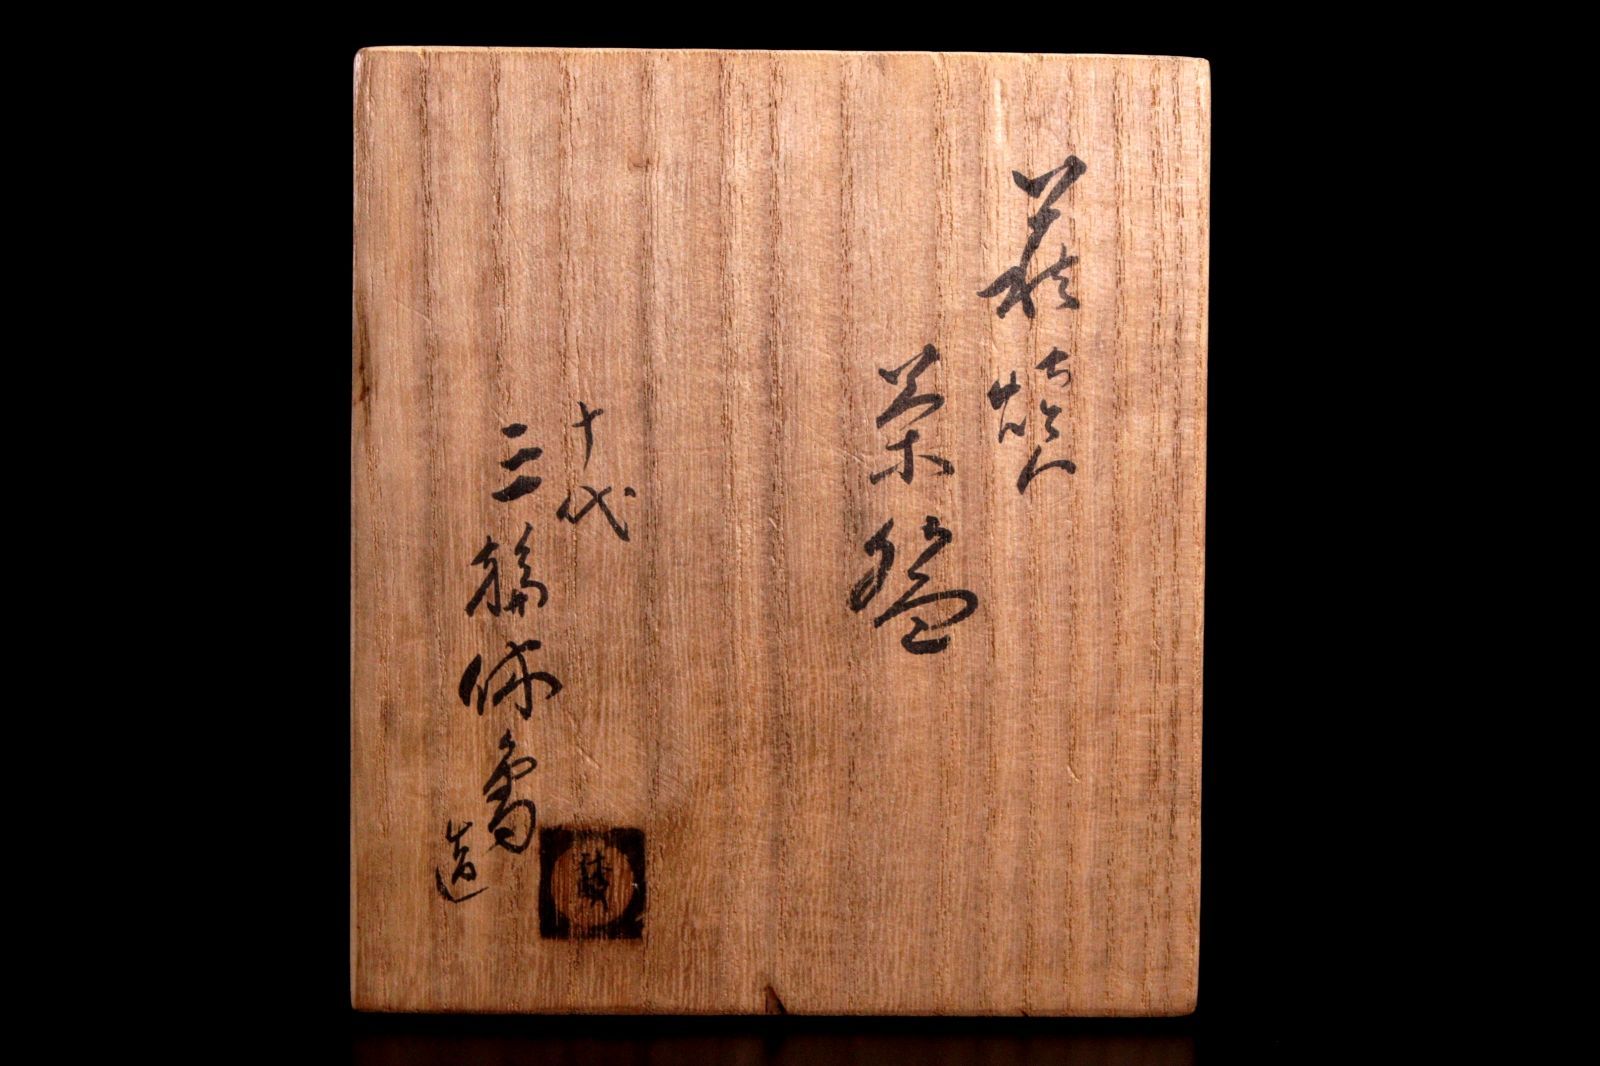 萩燒
茶盌
十代
三輪休雪
造